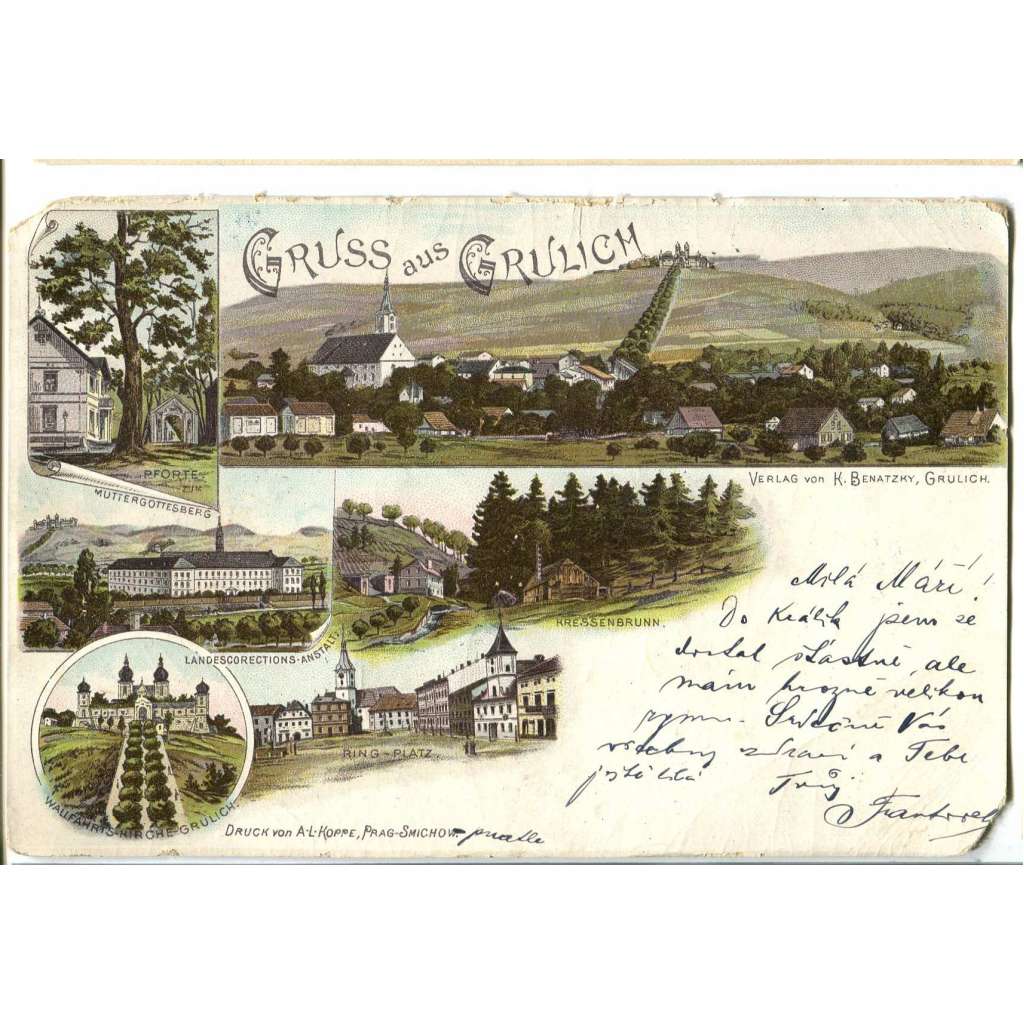 GRUSS AUS GRULICH
PFORTE
ZUM
MUTTERGOTTESBERG
VERLAG VON K. BENATZKY, GRULICH.
LANDESCORECTIONS-ANSTALT.
KRESSENBRUNN.
RING-PLATZ.
WALLFAHRTS-KIRCHE-GRULICH.
DRUCK VON A-L-KOPPE, PRAG-SMICHOW.
Milá Máří!
Do Králík jsem se
dostal šťastně, ale
mám hrozně velikou
rýmu. Srdečně Vás
všechny zdraví a Tebe
Tvůj